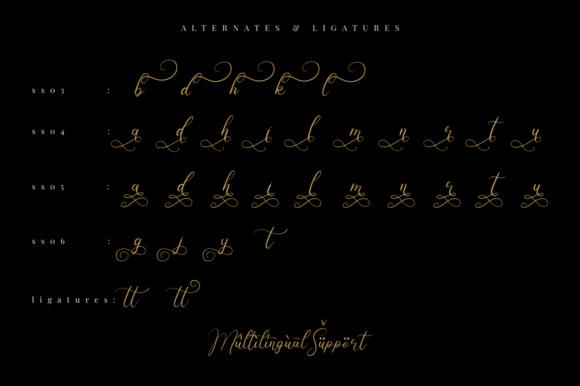 ALTERNATES & LIGATURES
ss03 : b d h k l
ss04 : a d h i l m n r t u
ss05 : a d h i l m n r t u
ss06 : g j y t
ligatures: tt tt
Mûltilïñgùãl Šüppört